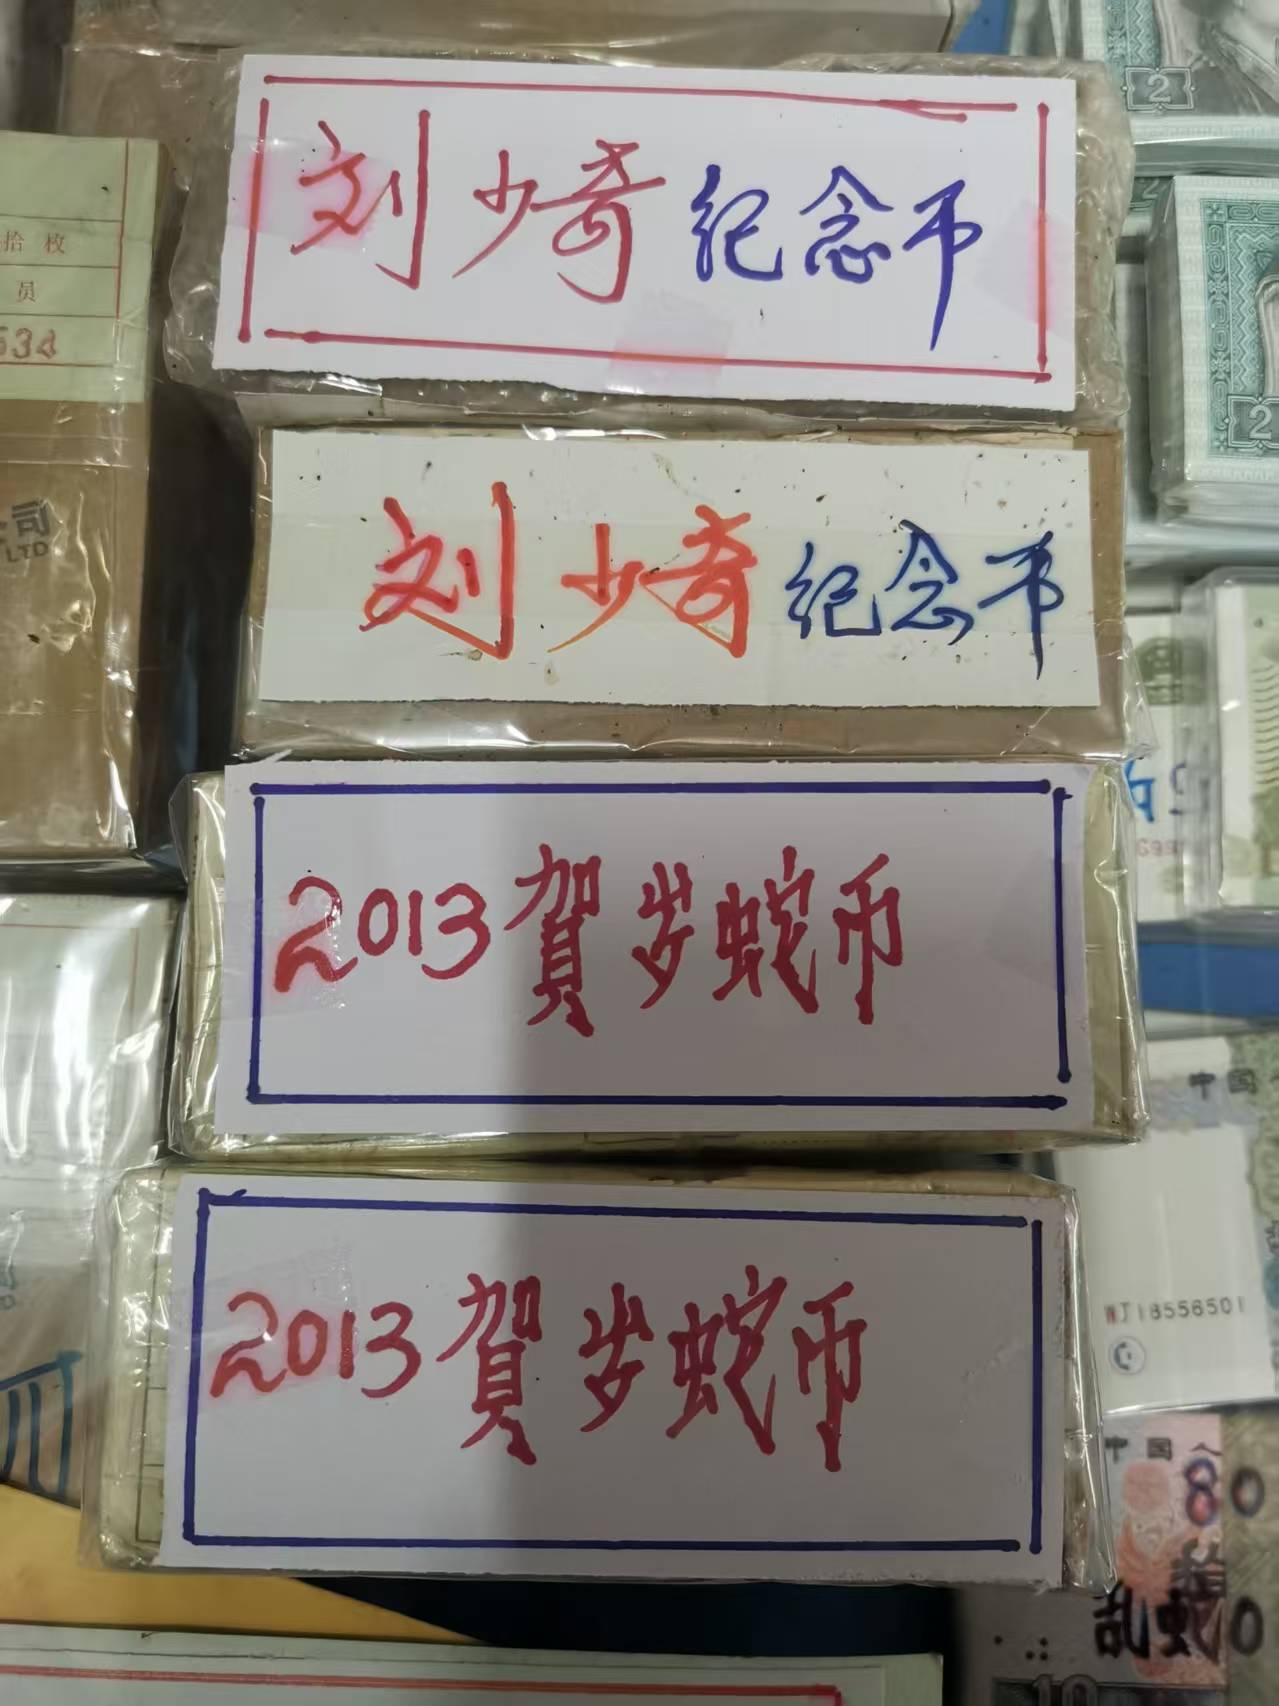 刘少奇纪念币
刘少奇纪念币
2013贺岁蛇币
2013贺岁蛇币
拾 枚
员
534
司
LTD
2
2
2
中国
WJ18556501
中国人
80
乱蛇0
10